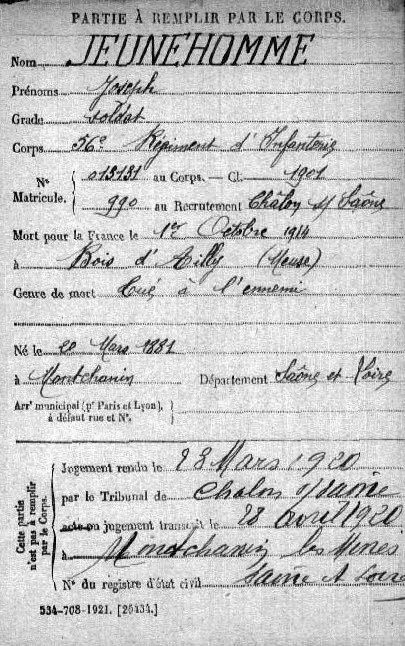 PARTIE À REMPLIR PAR LE CORPS.
Nom JEUNEHOMME
Prénoms Joseph
Grade soldat
Corps 56e Régiment d'Infanterie
N° Matricule. { 013131 au Corps. — Cl. 1901
990 au Recrutement Châlon s/ Saône
Mort pour la France le 1er Octobre 1914
à Bois d'Ailly (Meuse)
Genre de mort Tué à l'ennemi
Né le 28 Mars 1881
à Montchanin Département Saône et Loire
Arrt municipal (pr Paris et Lyon),
à défaut rue et N°.
Cette partie n'est pas à remplir par le Corps.
Jugement rendu le 23 Mars 1920
par le Tribunal de Chalon s/Saône
acte ou jugement transcrit le 28 avril 1920
à Montchanin les Mines
Saône et Loire
N° du registre d'état civil
534-708-1921. [26434.]